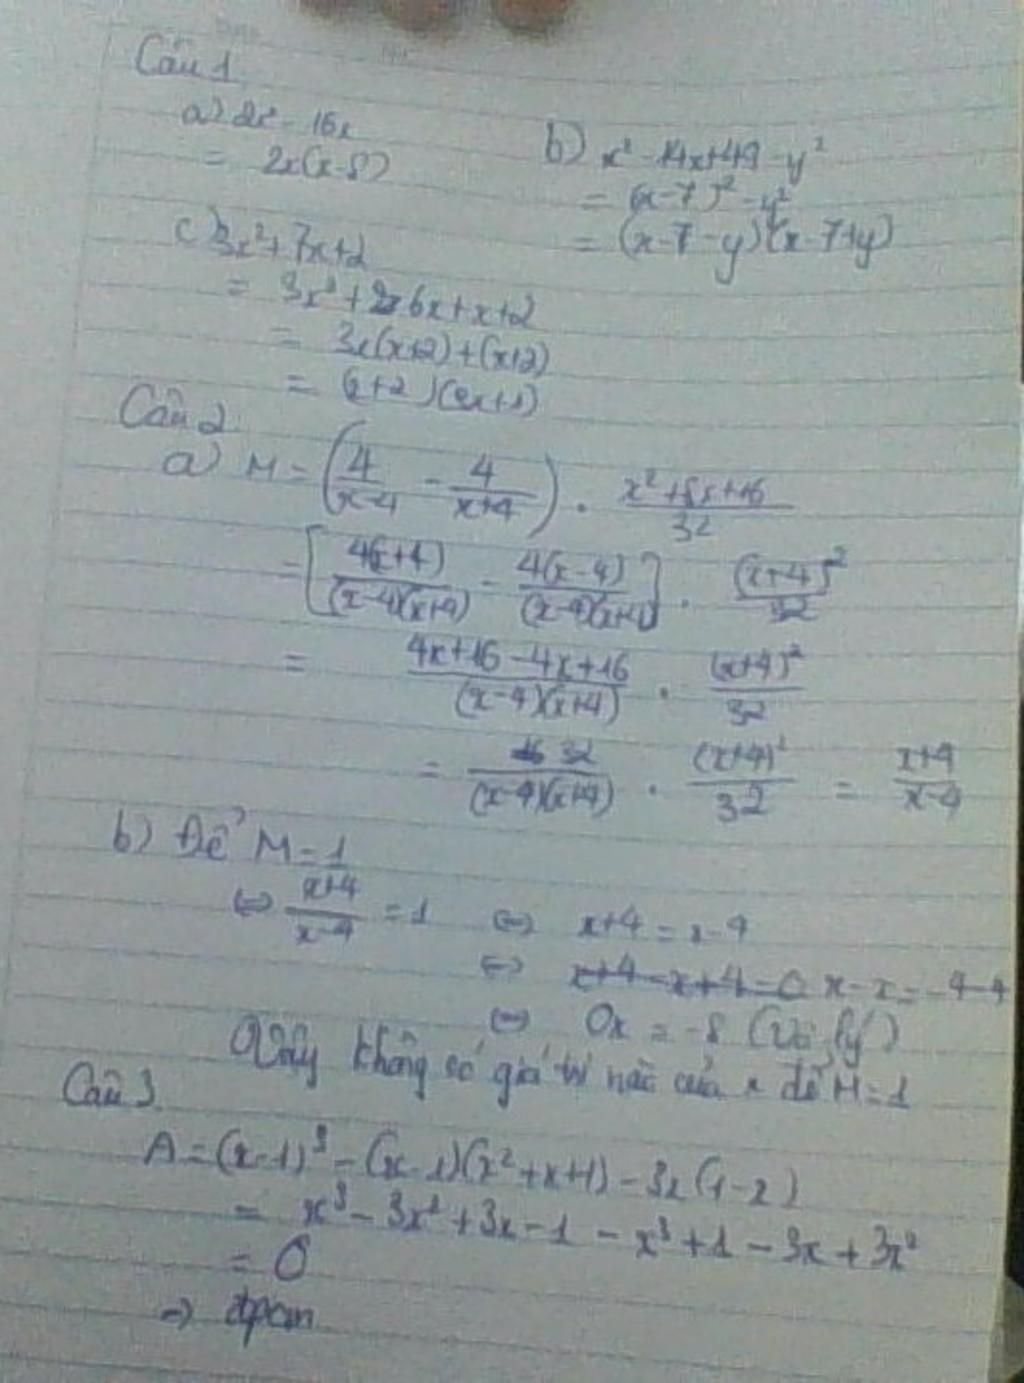 Câu 1
a) 2x² - 16x
= 2x(x-8)
b) x² - 14x+49 - y²
= (x-7)² - y²
= (x-7-y)(x-7+y)
c) 3x²+7x+2
= 3x²+6x+x+2
= 3x(x+2)+(x+2)
= (x+2)(3x+1)
Câu 2
a) M = (4/(x-4) - 4/(x+4)) . (x²+8x+16)/32
= [4(x+4)/((x-4)(x+4)) - 4(x-4)/((x-4)(x+4))] . (x+4)²/32
= (4x+16-4x+16)/((x-4)(x+4)) . (x+4)²/32
= 32/((x-4)(x+4)) . (x+4)²/32 = (x+4)/(x-4)
b) Để M = 1
⇔ (x+4)/(x-4) = 1 ⇔ x+4 = x-4
⇔ x+4-x+4=0 x-x = -4-4
⇔ 0x = -8 (Vô lý)
Vậy không có giá trị nào của x để M=1
Câu 3
A = (x-1)³ - (x-1)(x²+x+1) - 3x(1-x)
= x³ - 3x² + 3x - 1 - x³ + 1 - 3x + 3x²
= 0
⇒ đpcm